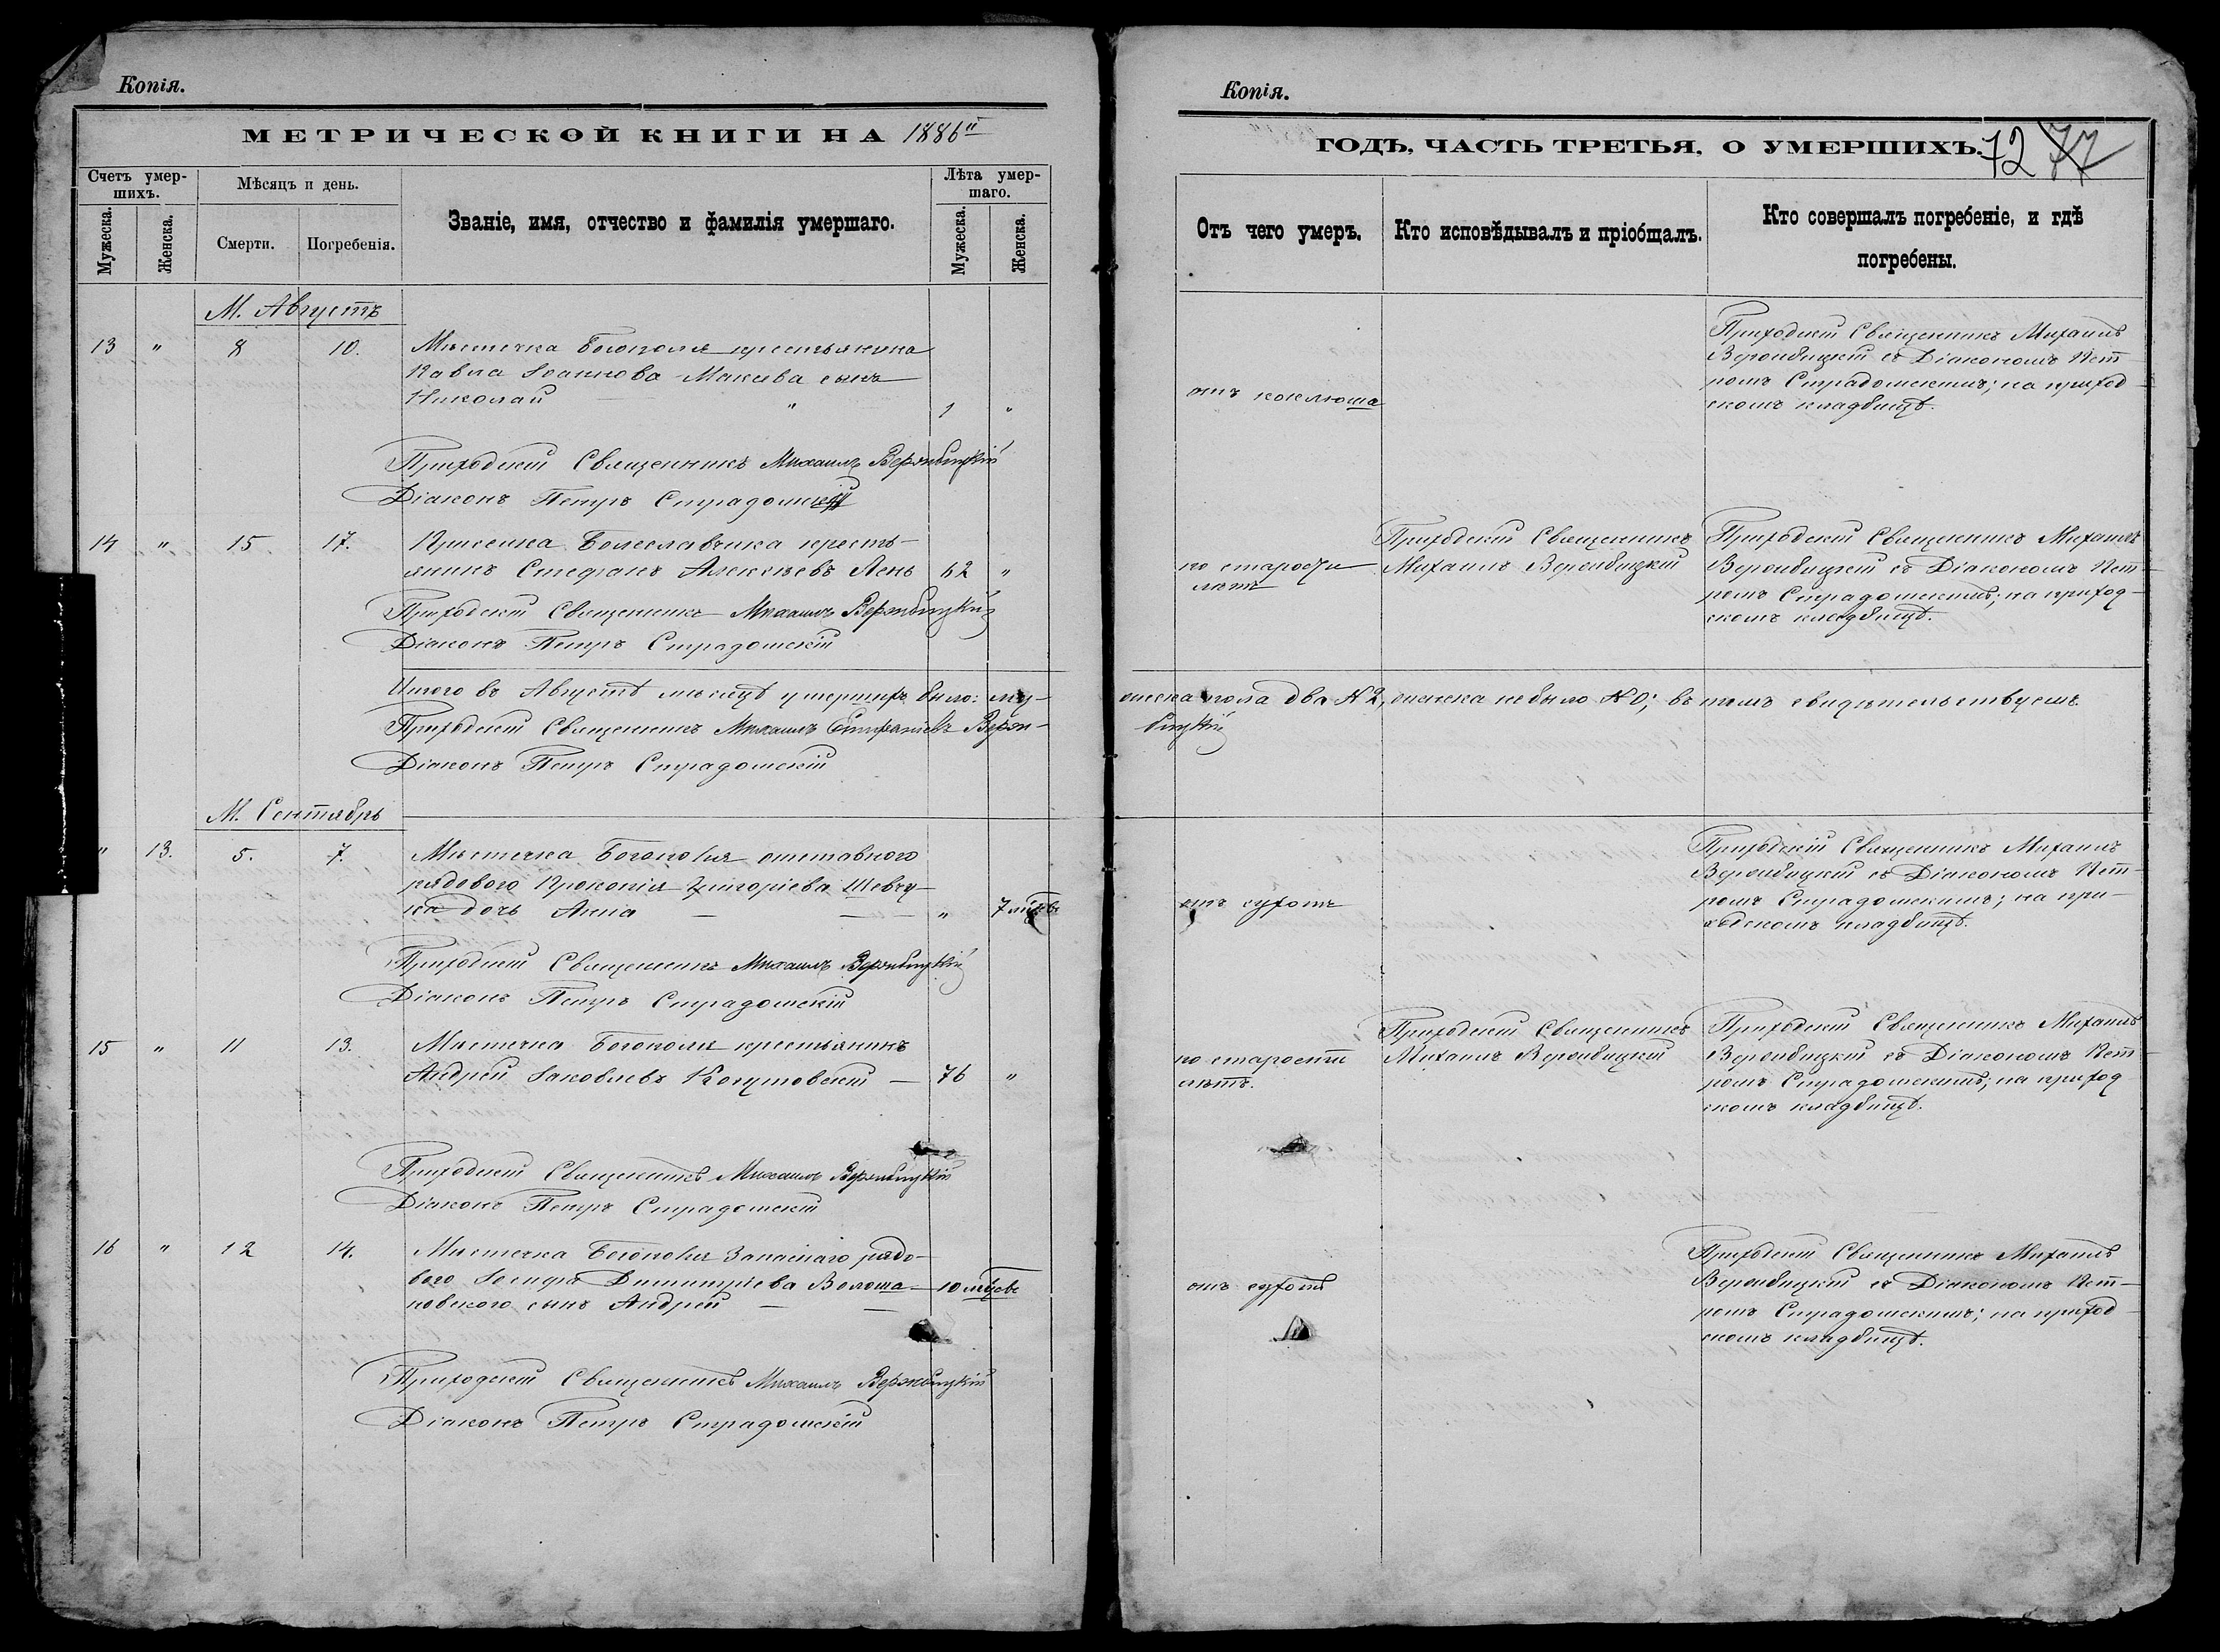 Копія.
МЕТРИЧЕСКОЙ КНИГИ НА 1886й
Счетъ умер-
шихъ.
Мѣсяцъ и день.
Званіе, имя, отчество и фамилія умершаго.
Лѣта умер-
шаго.
Мужеска.
Женска.
Смерти.
Погребенія.
Мужеска.
Женска.
М. Августъ
13 " 8 10. Мѣстечка Богополя крестьянина
Павла Іоаннова сынъ
Николай " 1 "
Приходскій Священникъ Михаилъ Вержбицкій
Діаконъ Петръ Страдомскій
14 " 15 17. Приселка Болеславчика кресть-
янинъ Стефанъ Алексѣевъ Лень 62 "
Приходскій Священникъ Михаилъ Вержбицкій
Діаконъ Петръ Страдомскій
Итого въ Августѣ мѣсяцѣ умершихъ было: му-
Приходскій Священникъ Михаилъ Верж-
Діаконъ Петръ Страдомскій
М. Сентябрь
" 13. 5. 7. Мѣстечка Богополя отставного
рядового Прокопія Григоріева Шевчу-
ка дочь Анна — — " 7 мѣсѣ
Приходскій Священникъ Михаилъ Вержбицкій
Діаконъ Петръ Страдомскій
15 " 11 13. Мѣстечка Богополя крестьянинъ
Андрей Іаковлевъ — 76 "
Приходскій Священникъ Михаилъ Вержбицкій
Діаконъ Петръ Страдомскій
16 " 12 14. Мѣстечка Богополя Запаснаго рядо-
вого Іосифа Димитріева Волоша-
новского сынъ Андрей — — 10 мѣсѣ
Приходскій Священникъ Михаилъ Вержбицкій
Діаконъ Петръ Страдомскій
Копія.
ГОДЪ, ЧАСТЬ ТРЕТЬЯ, О УМЕРШИХЪ.
72 77
Отъ чего умеръ.
Кто исповѣдывалъ и пріобщалъ.
Кто совершалъ погребеніе, и гдѣ
погребены.
отъ коклюша
Приходскій Священникъ Михаилъ
Вержбицкій съ Діакономъ Пет-
ромъ Страдомскимъ; на приход-
скомъ кладбищѣ.
по старости
лѣтъ
Приходскій Священникъ
Михаилъ Вержбицкій
Приходскій Священникъ Михаилъ
Вержбицкій съ Діакономъ Пет-
ромъ Страдомскимъ; на приход-
скомъ кладбищѣ.
жеска пола два №2, женска не было №0; въ томъ свидѣтельствуемъ
бицкій
отъ сухотъ
Приходскій Священникъ Михаилъ
Вержбицкій съ Діакономъ Пет-
ромъ Страдомскимъ; на при-
ходскомъ кладбищѣ.
по старости
лѣтъ.
Приходскій Священникъ
Михаилъ Вержбицкій
Приходскій Священникъ Михаилъ
Вержбицкій съ Діакономъ Пет-
ромъ Страдомскимъ; на приход
скомъ кладбищѣ.
отъ сухотъ
Приходскій Священникъ Михаилъ
Вержбицкій съ Діакономъ Пет-
ромъ Страдомскимъ; на приход-
скомъ кладбищѣ.